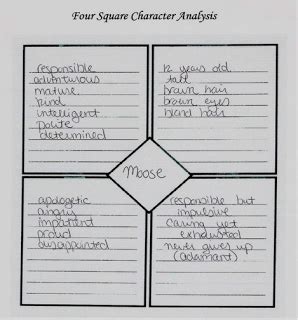 Four Square Character Analysis
responsible
adventurous
mature
kind
intelligent
polite
determined
12 years old
tall
brown hair
brown eyes
Moose
apologetic
angry
impatient
proud
disappointed
responsible but
impulsive
caring yet
exhausted
never gives up
(adamant)